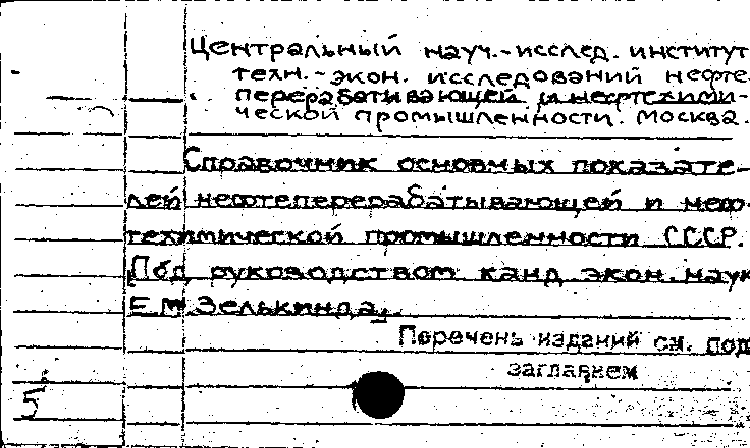 Центральный науч.-исслед. институт
техн.-экон. исследований нефте-
перерабатывающей и нефтехими-
ческой промышленности. Москва.
Справочник основных показате-
лей нефтеперерабатывающей и неф-
техимической промышленности СССР.
[Под руководством канд экон. наук
Е.М Зелькинда].
Перечень изданий см. под
заглавием
5